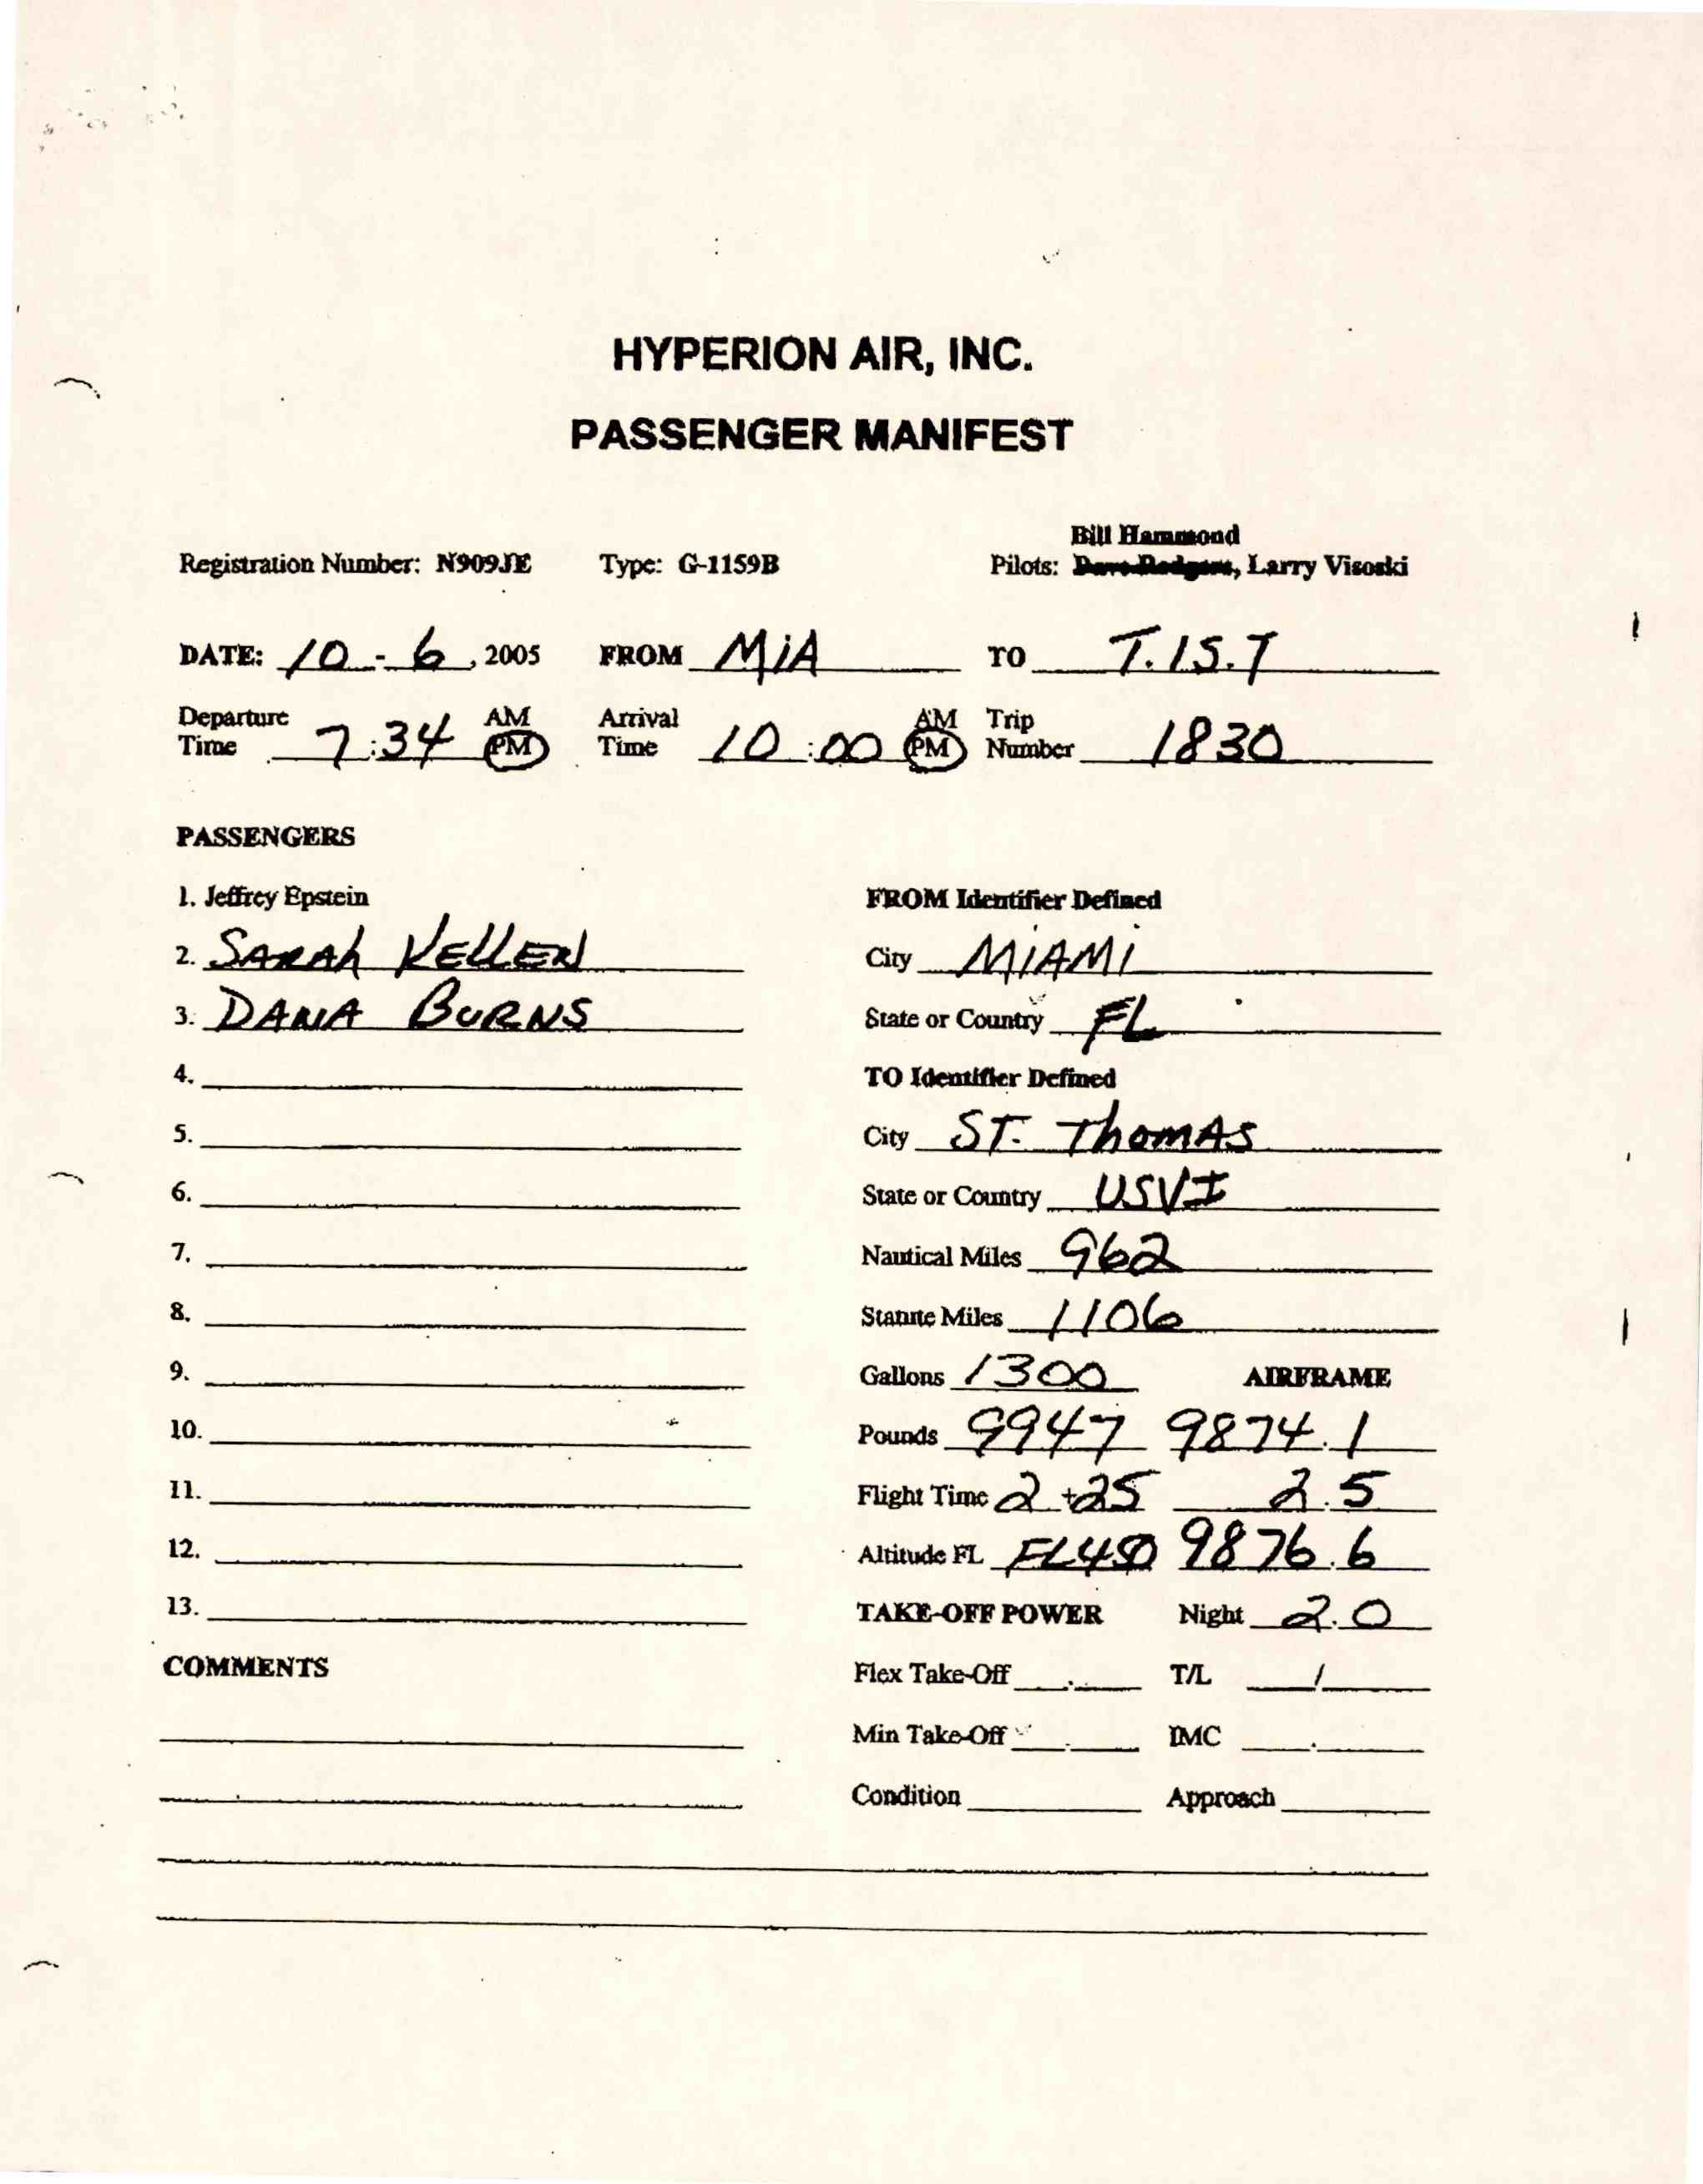 HYPERION AIR, INC.
PASSENGER MANIFEST
Bill Hammond
Registration Number: N909JE Type: G-1159B Pilots: Dave Rodgers, Larry Visoski
DATE: 10 - 6, 2005 FROM MiA TO T.IS.T
Departure Time 7:34 AM PM Arrival Time 10:00 AM PM Trip Number 1830
PASSENGERS
1. Jeffrey Epstein
2. SARAh KELLEN
3. DANA BURNS
4.
5.
6.
7.
8.
9.
10.
11.
12.
13.
COMMENTS
FROM Identifier Defined
City MiAMi
State or Country FL
TO Identifier Defined
City ST. ThomAS
State or Country USVI
Nautical Miles 962
Statute Miles 1106
Gallons 1300 AIRFRAME
Pounds 9947 9874.1
Flight Time 2+25 2.5
Altitude FL 9876.6
TAKE-OFF POWER Night 2.0
Flex Take-Off . T/L /
Min Take-Off . IMC .
Condition Approach